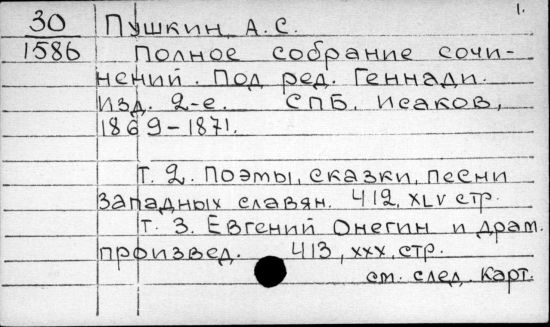 1.
30 Пушкин, А.С.
1586 Полное собрание сочи-
нений. Под ред. Геннади.
Изд. 2-е. СПБ, Исаков,
1869-1871.
Т. 2. Поэмы, сказки, песни
западных славян. 412, XLV стр.
Т. 3. Евгений Онегин и драм.
произвед. 413, XXX, стр.
см. след. карт.